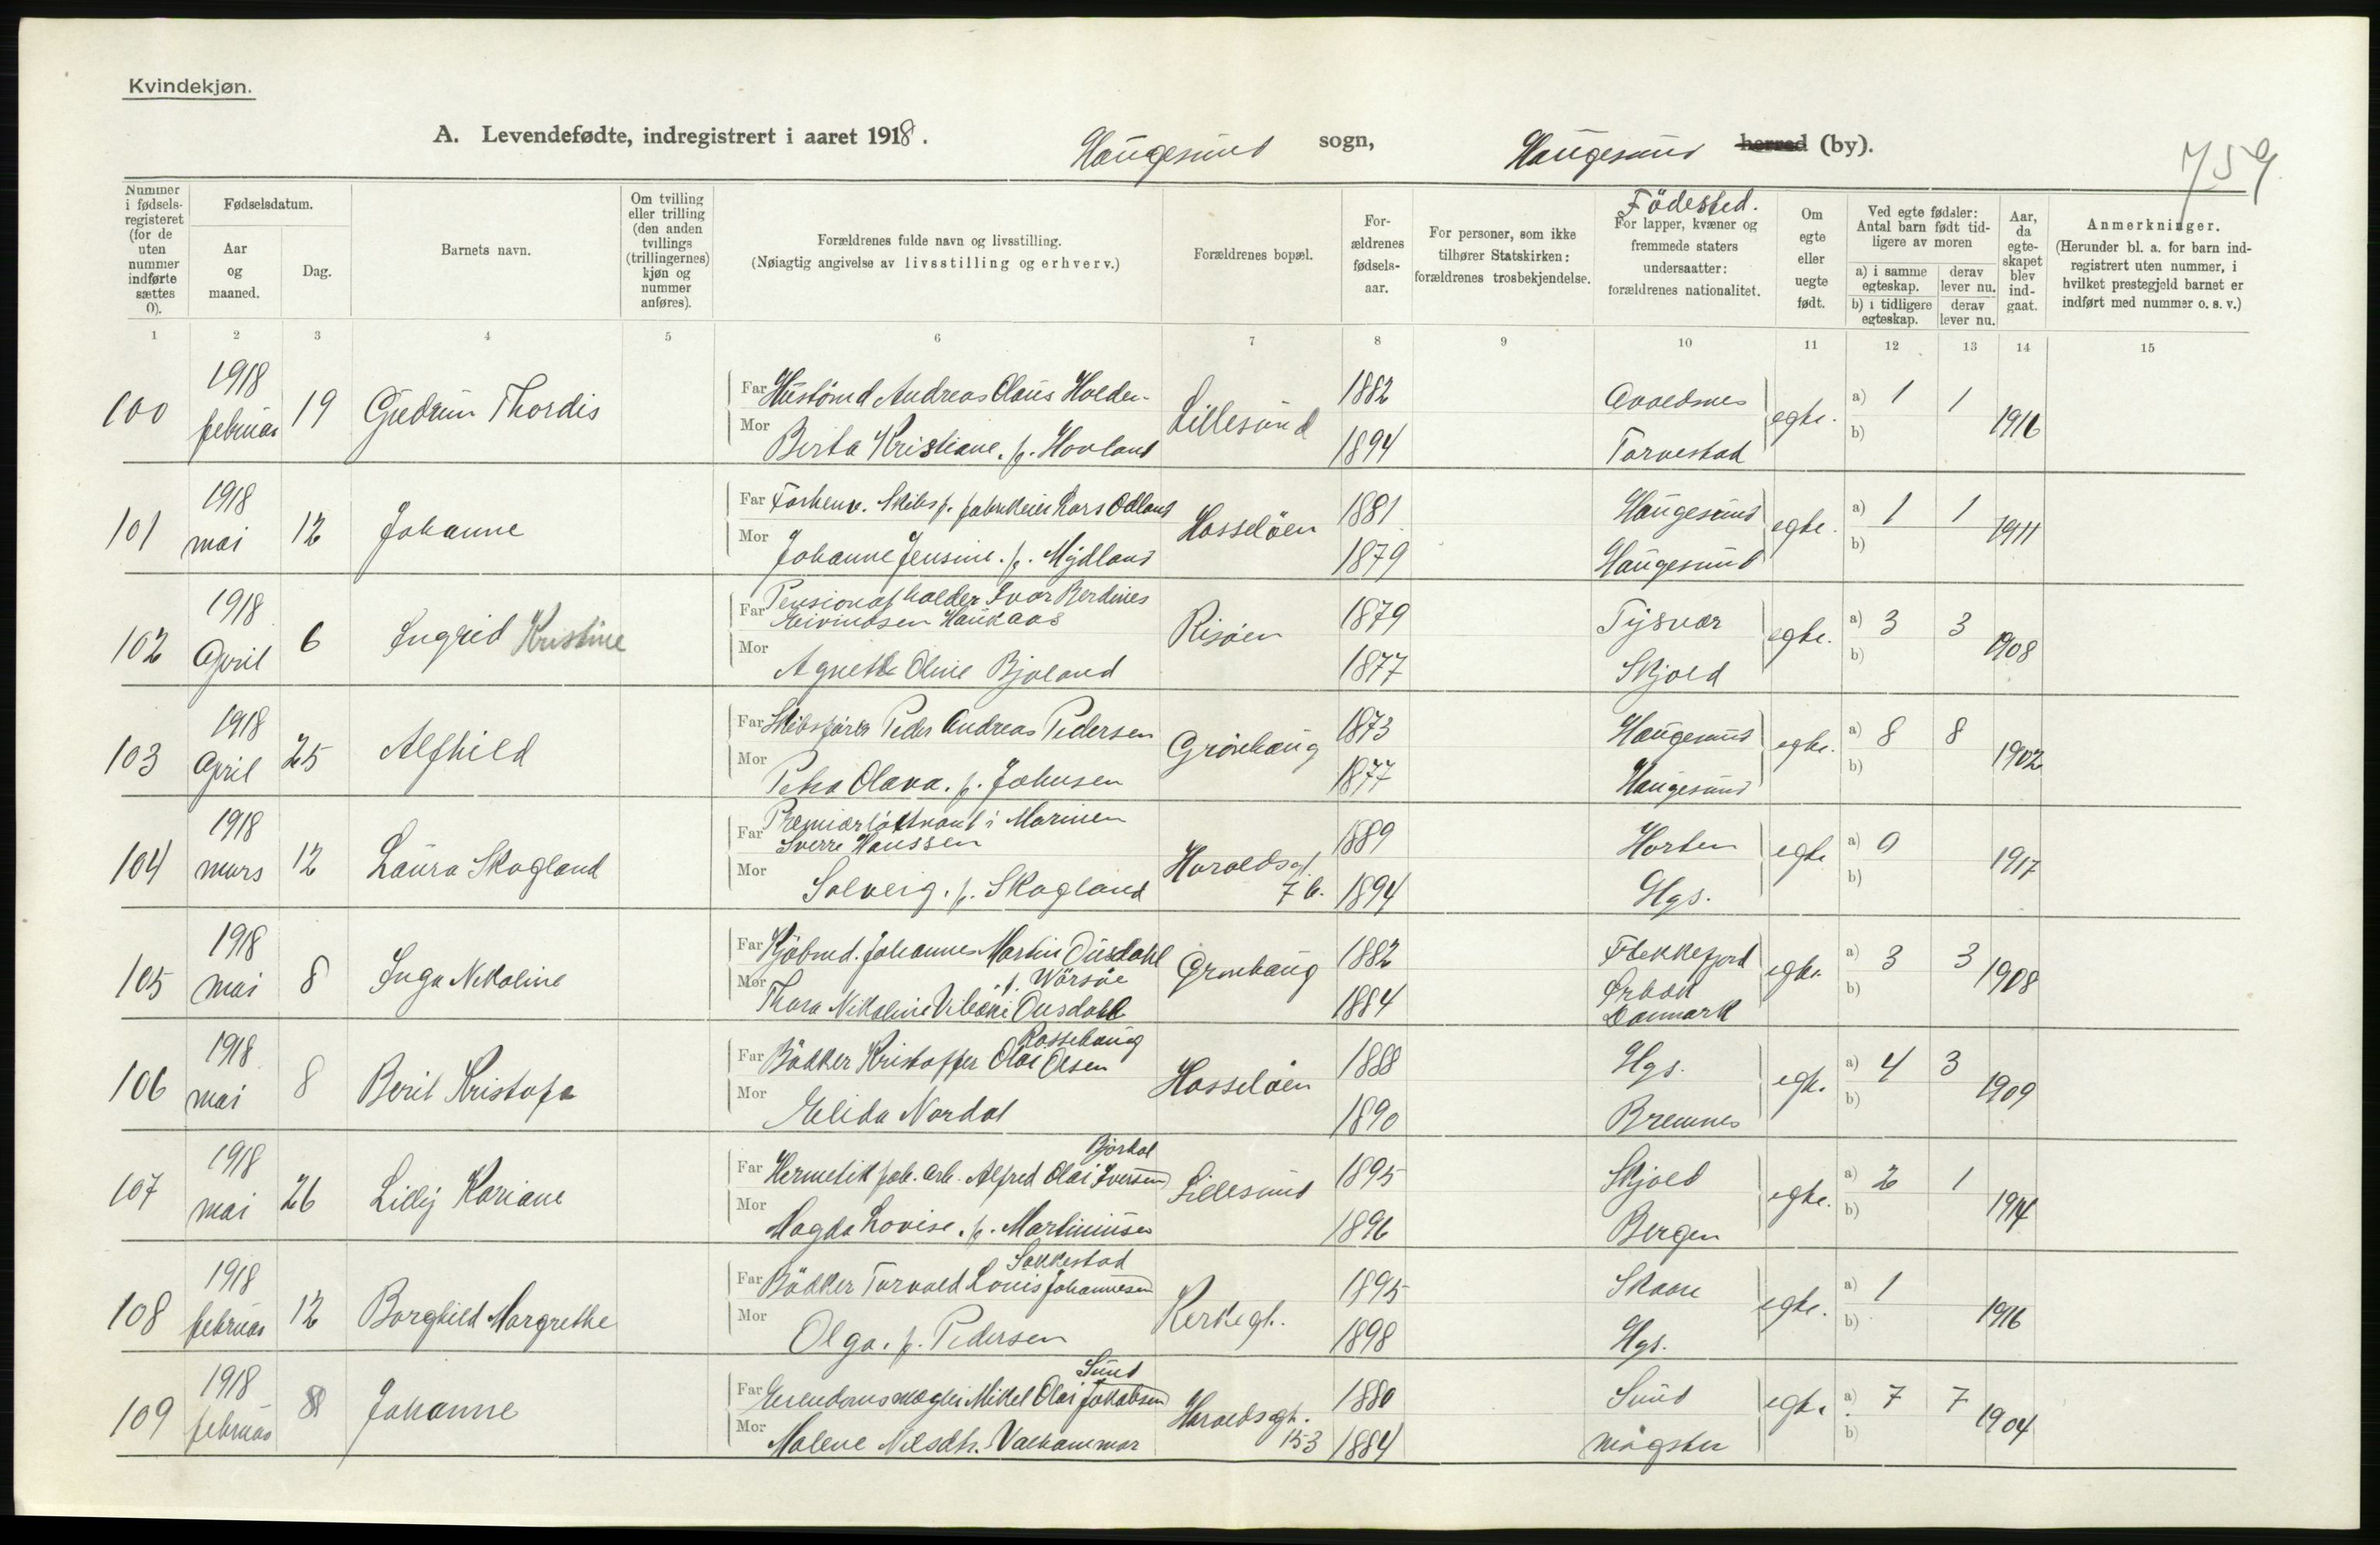 Kvindekjøn.
A. Levendefødte, indregistrert i aaret 1918. Haugesund sogn, Haugesund herred (by).
759
Nummer i fødsels-registeret (for de uten nummer indførte sættes 0).
Fødselsdatum.
Aar og maaned.
Dag.
Barnets navn.
Om tvilling eller trilling (den anden tvillings (trillingernes) kjøn og nummer anføres).
Forældrenes fulde navn og livsstilling.
(Nøiagtig angivelse av livsstilling og erhverv.)
Forældrenes bopæl.
For-ældrenes fødsels-aar.
For personer, som ikke tilhører Statskirken: forældrenes trosbekjendelse.
Födested.
For lapper, kvæner og fremmede staters undersaatter: forældrenes nationalitet.
Om egte eller uegte født.
Ved egte fødsler: Antal barn født tid-ligere av moren
a) i samme egteskap.
derav lever nu.
b) i tidligere egteskap.
derav lever nu.
Aar, da egte-skapet blev ind-gaat.
Anmerkninger.
(Herunder bl. a. for barn ind-registrert uten nummer, i hvilket prestegjeld barnet er indført med nummer o. s. v.)
1 2 3 4 5 6 7 8 9 10 11 12 13 14 15
100 1918 februar 19 Gudrun Thordis
Far Andreas Olaus Holden Lillesund 1882 Avaldsnes egte. a) 1 1 1916
Mor Berta Kristiane. f. Hovland 1894 Torvestad b)
101 1918 mai 12 Johanne
Far Forhenv. Skibsf. Lars Odland Hasselöen 1881 Haugesund egte. a) 1 1 1911
Mor Johanne Jensine. f. Mydland 1879 Haugesund b)
102 1918 April 6 Ingrid Kristine
Far Ivar Berdines Eivindsen Haukaas Risöen 1879 Tysvær egte. a) 3 3 1908
Mor Agnethe Oline Bjoland 1877 Skjold b)
103 1918 April 25 Alfhild
Far Skibsförer Peder Andreas Pedersen Grönhaug 1873 Haugesund egte. a) 8 8 1902
Mor Petra Olava. f. Johnsen 1877 Haugesund b)
104 1918 mars 12 Laura Skogland
Far Premierlöitnant i Marinen Sverre Hanssen Haraldsgt. 76. 1889 Horten egte a) 0 1917
Mor Solveig. f. Skogland 1894 Hgs. b)
105 1918 mai 8 Inga Nikoline
Far Kjöbmd. Johannes Martin Ousdahl Grønhaug 1882 Flekkefjord egte. a) 3 3 1908
Mor Thora Nikoline Ousdahl f. Wörsöe 1884 Danmark b)
106 1918 mai 8 Beril Kristofa
Far Bödker Kristoffer Olai Olsen Rossehaug Hasselöen 1888 Hgs. egte. a) 4 3 1909
Mor Elida Nordal 1890 Bremnes b)
107 1918 mai 26 Lilly Kariane
Far Hermetikfab. arb. Alfred Olai Iversen Lillesund 1895 Skjold egte. a) 2 1 1914
Mor Magda Lovise. f. Martiniusen 1896 Bergen b)
108 1918 februar 12 Borghild Margrethe
Far Bödker Torvald Louis Johannesen Sakkestad Kirkegt. 1895 Skaare egte. a) 1 1916
Mor Olga. f. Pedersen 1898 Hgs. b)
109 1918 februar 8 Johanne
Far Eiendomsmægler Mikal Olai Jakobsen Sund Haraldsgt. 153 1880 Sund egte. a) 7 7 1904
Mor Malene Nilsdtr. Valhammar 1884 Møgster b)